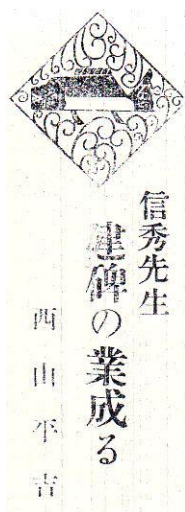 信秀先生
建碑の業成る
西山平吉